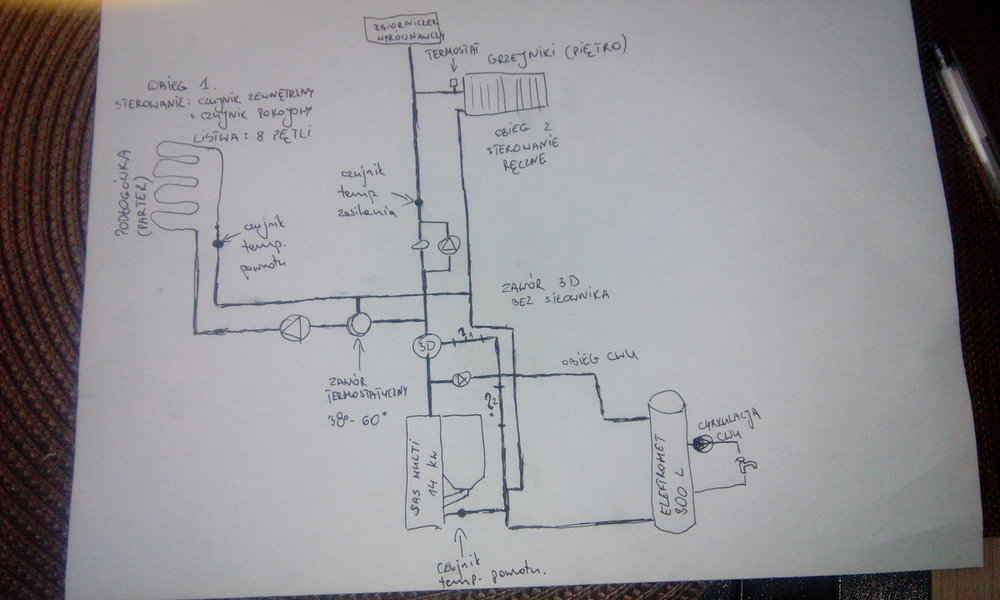 ZBIORNICZEK
WYRÓWNAWCZY
TERMOSTAT
GRZEJNIKI (PIĘTRO)
OBIEG 1.
STEROWANIE: CZUJNIK ZEWNĘTRZNY
+ CZUJNIK POKOJOWY
LISTWA: 8 PĘTLI
OBIEG 2
STEROWANIE
RĘCZNE
PODŁOGÓWKA
(PARTER)
czujnik
temp.
zasilania
czujnik
temp.
powrotu
ZAWÓR 3D
BEZ SIŁOWNIKA
3D
?1
OBIEG CWU
ZAWÓR
TERMOSTATYCZNY
38°-60°
?2
SAS MULTI
14 KW
ELEKTROMET
300 L
CYRKULACJA
CWU
czujnik
temp. powrotu.